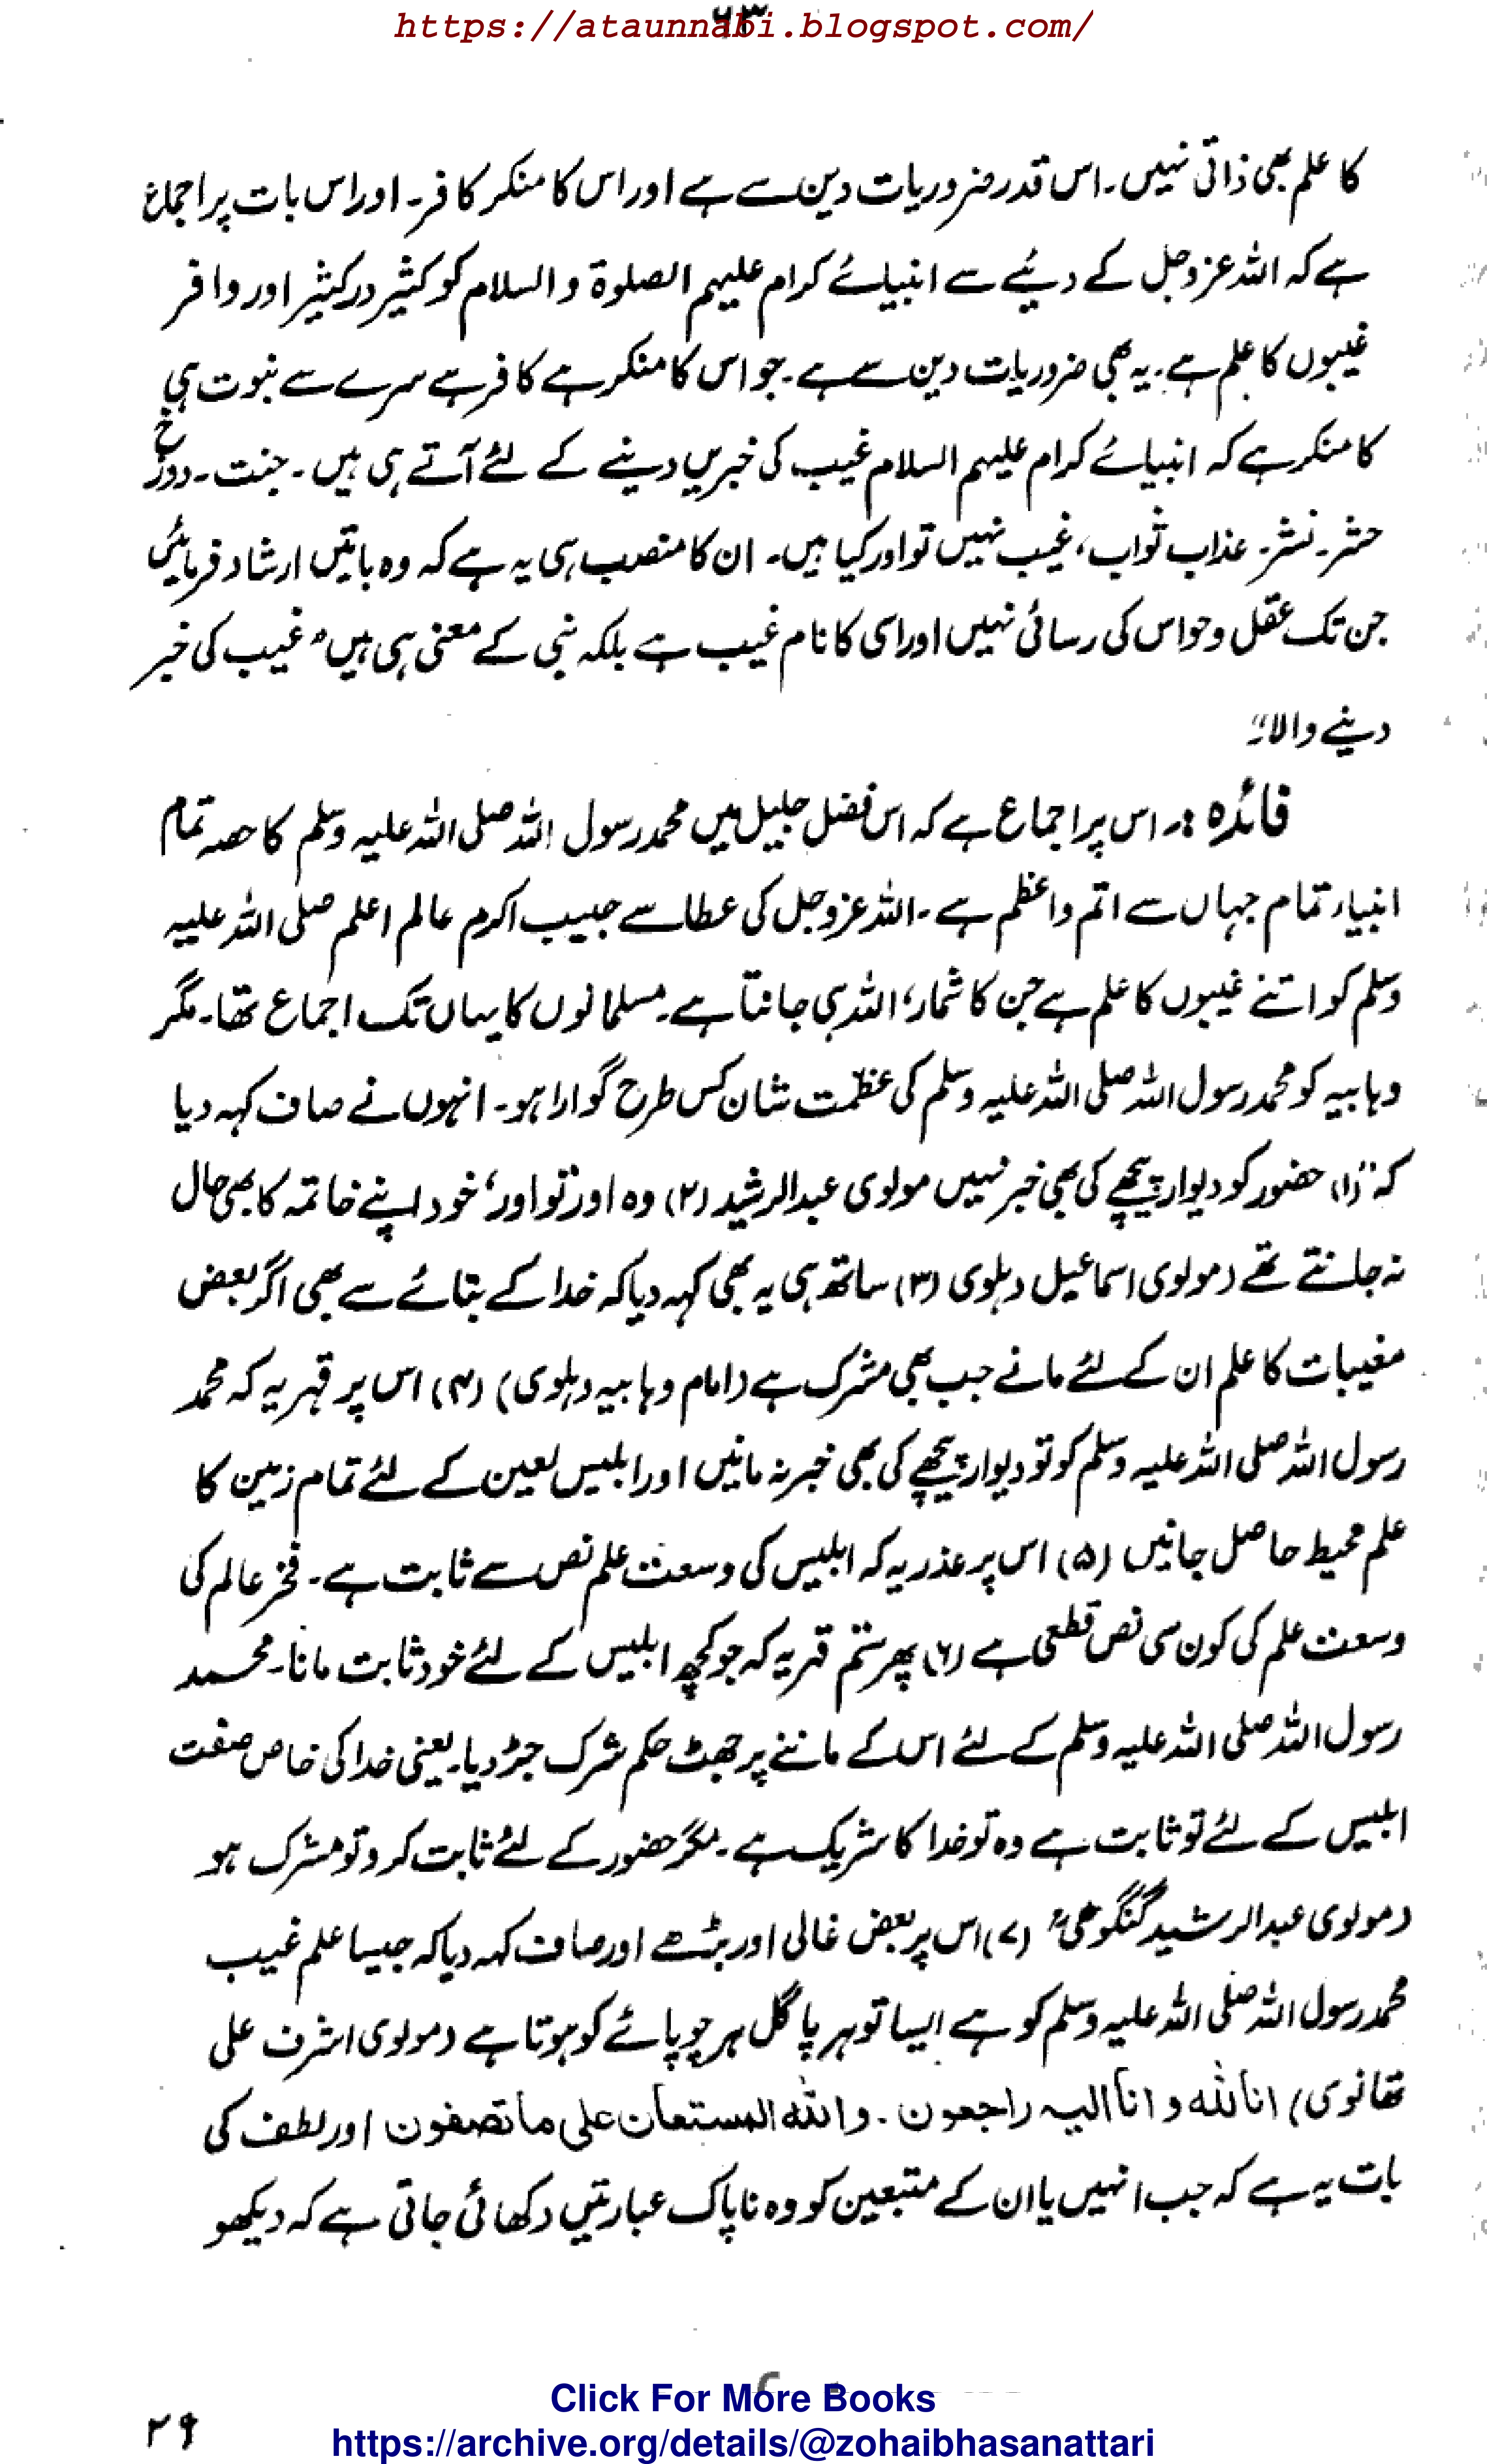 ۶۳
https://ataunnabi.blogspot.com/
کا علم بھی ذاتی نہیں۔ اس قدر ضروریات دین سے ہے اور اس کا منکر کافر۔ اور اس بات پر اجماع
ہے کہ اللہ عزوجل کے دیئے سے انبیائے کرام علیہم الصلوۃ والسلام کو کثیر در کثیر اور وافر
غیبوں کا علم ہے۔ یہ بھی ضروریات دین سے ہے۔ جو اس کا منکر ہے کافر ہے سرے سے نبوت ہی
کا منکر ہے کہ انبیائے کرام علیہم السلام غیب کی خبریں دینے کے لئے آتے ہی ہیں۔ جنت۔ دوزخ
حشر۔ نشر۔ عذاب ثواب، غیب نہیں تو اور کیا ہیں۔ ان کا منصب ہی یہ ہے کہ وہ باتیں ارشاد فرمائیں
جن تک عقل و حواس کی رسائی نہیں اور اسی کا نام غیب ہے بلکہ نبی کے معنی ہی ہیں "غیب کی خبر
دینے والا"۔
فائدہ :۔ اس پر اجماع ہے کہ اس فضل جلیل میں محمد رسول اللہ صلی اللہ علیہ وسلم کا حصہ تمام
انبیاء تمام جہاں سے اتم و اعظم ہے۔ اللہ عزوجل کی عطا سے حبیب اکرم عالم اعلم صلی اللہ علیہ
وسلم کو اتنے غیبوں کا علم ہے جن کا شمار، اللہ ہی جانتا ہے۔ مسلمانوں کا یہاں تک اجماع تھا۔ مگر
وہابیہ کو محمد رسول اللہ صلی اللہ علیہ وسلم کی عظمت شان کس طرح گوارا ہو۔ انہوں نے صاف کہہ دیا
کہ "(۱) حضور کو دیوار پیچھے کی بھی خبر نہیں مولوی عبدالرشید (۲) وہ اور تو اور، خود اپنے خاتمہ کا بھی حال
نہ جانتے تھے (مولوی اسماعیل دہلوی (۳) ساتھ ہی یہ بھی کہہ دیا کہ خدا کے بتائے سے بھی اگر بعض
مغیبات کا علم ان کے لئے مانے جب بھی مشرک ہے (امام وہابیہ دہلوی) (۴) اس پر قہر یہ کہ محمد
رسول اللہ صلی اللہ علیہ وسلم کو تو دیوار پیچھے کی بھی خبر نہ مانیں اور ابلیس لعین کے لئے تمام زمین کا
علم محیط حاصل جانیں (۵) اس پر عذر یہ کہ ابلیس کی وسعت علم نص سے ثابت ہے۔ فخر عالم کی
وسعت علم کی کون سی نص قطعی ہے (۶) پھر ستم قہر یہ کہ جو کچھ ابلیس کے لئے خود ثابت مانا۔ محمد
رسول اللہ صلی اللہ علیہ وسلم کے لئے اس کے ماننے پر جھٹ حکم شرک جڑ دیا۔ یعنی خدا کی خاص صفت
ابلیس کے لئے تو ثابت ہے وہ تو خدا کا شریک ہے۔ مگر حضور کے لئے ثابت کرو تو مشرک ہو
(مولوی عبدالرشید گنگوھی" (۷) اس پر بعض غالی اور بڑھے اور صاف کہہ دیا کہ جیسا علم غیب
محمد رسول اللہ صلی اللہ علیہ وسلم کو ہے ایسا تو ہر پاگل ہر چوپائے کو ہوتا ہے (مولوی اشرف علی
تھانوی) انا للہ و انا الیہ راجعون۔ واللہ المستعان علی ما تصفون اور لطف کی
بات یہ ہے کہ جب انہیں یا ان کے متبعین کو وہ ناپاک عبارتیں دکھائی جاتی ہے کہ دیکھو
Click For More Books
۲۹
https://archive.org/details/@zohaibhasanattari